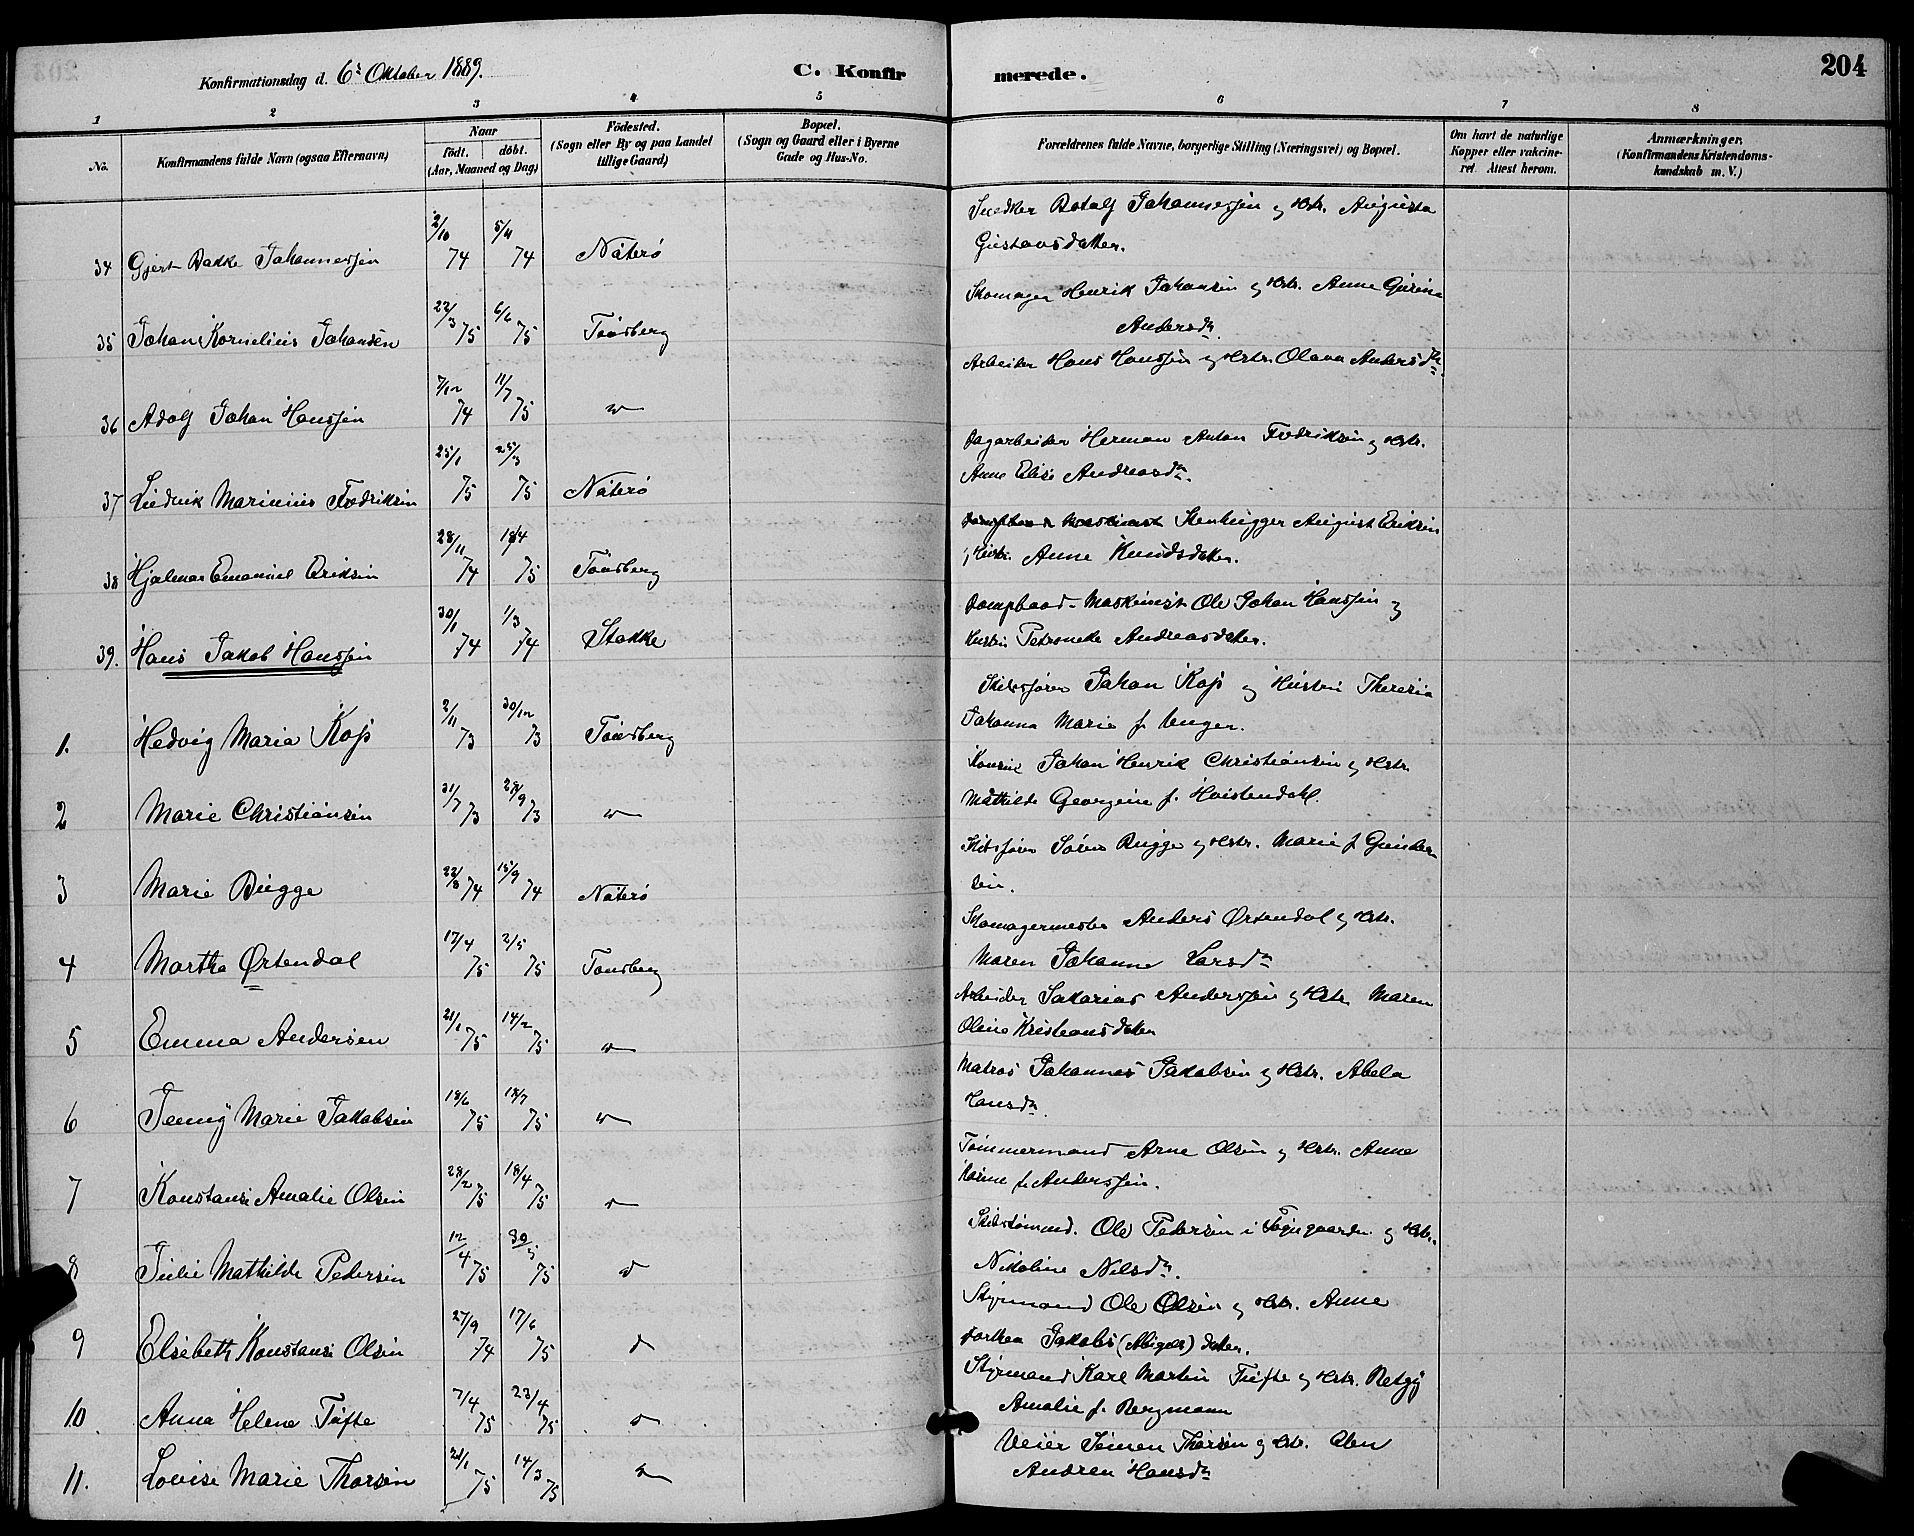 Konfirmationsdag d. 6' Oktober 1889.
C. Konfirmerede.
204
1 2 3 4 5 6 7 8
No.
Konfirmandens fulde Navn (ogsaa Efternavn)
Naar
födt. döbt.
(Aar, Maaned og Dag)
Födested.
(Sogn eller By og paa Landet
tillige Gaard)
Bopæl.
(Sogn og Gaard eller i Byerne
Gade og Hus-No.
Forældrenes fulde Navne, borgerlige Stilling (Næringsvei) og Bopæl.
Om havt de naturlige
Kopper eller vakcine-
ret. Attest herom.
Anmærkninger.
(Konfirmandens Kristendoms-
kundskab m. V.)
34 Gjert Bakke Johannessen 2/10 74 5/11 74 Nøterø
Snedker Botolf Johannessen og Hstr. Augusta
Gustavsdatter.
35 Johan Kornelius Johansen 22/3 75 6/6 75 Tønsberg
Skomager Henrik Johansen og Hstr. Anne
Andersdr.
36 Adolf Johan Hanssen 7/12 74 11/7 75
Arbeider Hans Hanssen og Hstr. Olava Andersdr.
37 Ludvik Marinius Fredriksen 25/1 75 25/3 75 Nøterø
Dagarbeider Herman Anton Fredriksen og Hstr.
Anne Elise Andreasdr.
38 Hjalmar Emanuel Eriksen 28/11 74 18/4 75 Tønsberg
Stenhugger August Eriksen
og Hustr. Anne Knudsdatter.
39. Hans Jakob Hanssen 30/1 74 1/3 74 Stokke
Dampbaad-Maskinist Ole Johan Hanssen og
Hustru Petronelle Andreasdatter.
1. Hedvig Maria Kop 2/11 73 30/12 73 Tønsberg
Skibsfører Johan Kop og Hustru Theresia
Johanna Marie f. Unger.
2 Marie Christiansen 31/7 73 28/9 73
Konsul Johan Henrik Christiansen og Hstr.
Mathilde Georgine f. Hvistendahl.
3 Marie Bugge 22/3 74 15/9 74 Nøterø
Skibsfører Søren Bugge og Hstr. Marie f Gunder-
sen.
4 Martha Ørtendal 17/4 75 2/5 75 Tønsberg
Skomagermester Anders Ørtendal og Hstr.
Maren Johanne Larsdr
5 Emma Andersen 21/1 75 14/2 75
Arbeider Sakarias Anderssen og Hstr. Maren
Oline Kristiansdatter
6 Jenny Marie Jakobsen 18/6 75 18/7 75
Matros Johannes Jakobsen og Hstr. Abela
Hansdr.
7 Konstanse Amalie Olsen 28/2 75 18/4 75
Tømmermand Arne Olsen og Hstr. Anne
Karine f. Anderssen.
8 Julie Mathilde Pedersen 12/4 75 30/5 75
Skibstømmd. Ole Pedersen i Fogegaarden og Hstr.
Nikoline Nilsdr.
9 Elisbeth Konstanse Olsen 27/9 74 17/6 75
Styrmand Ole Olsen og Hstr. Anne
Dorthea Jakobs (Abigael) datter.
10. Anna Helene Tufte 7/4 75 23/4 75
Styrmand Karl Martin Tufte og Hstr. Betzy
Amalie f. Bergmann
11. Lovise Marie Thorsen 21/1 75 14/3 75
Veier Simen Thorsen og Hstr.
Andrea Hansdr